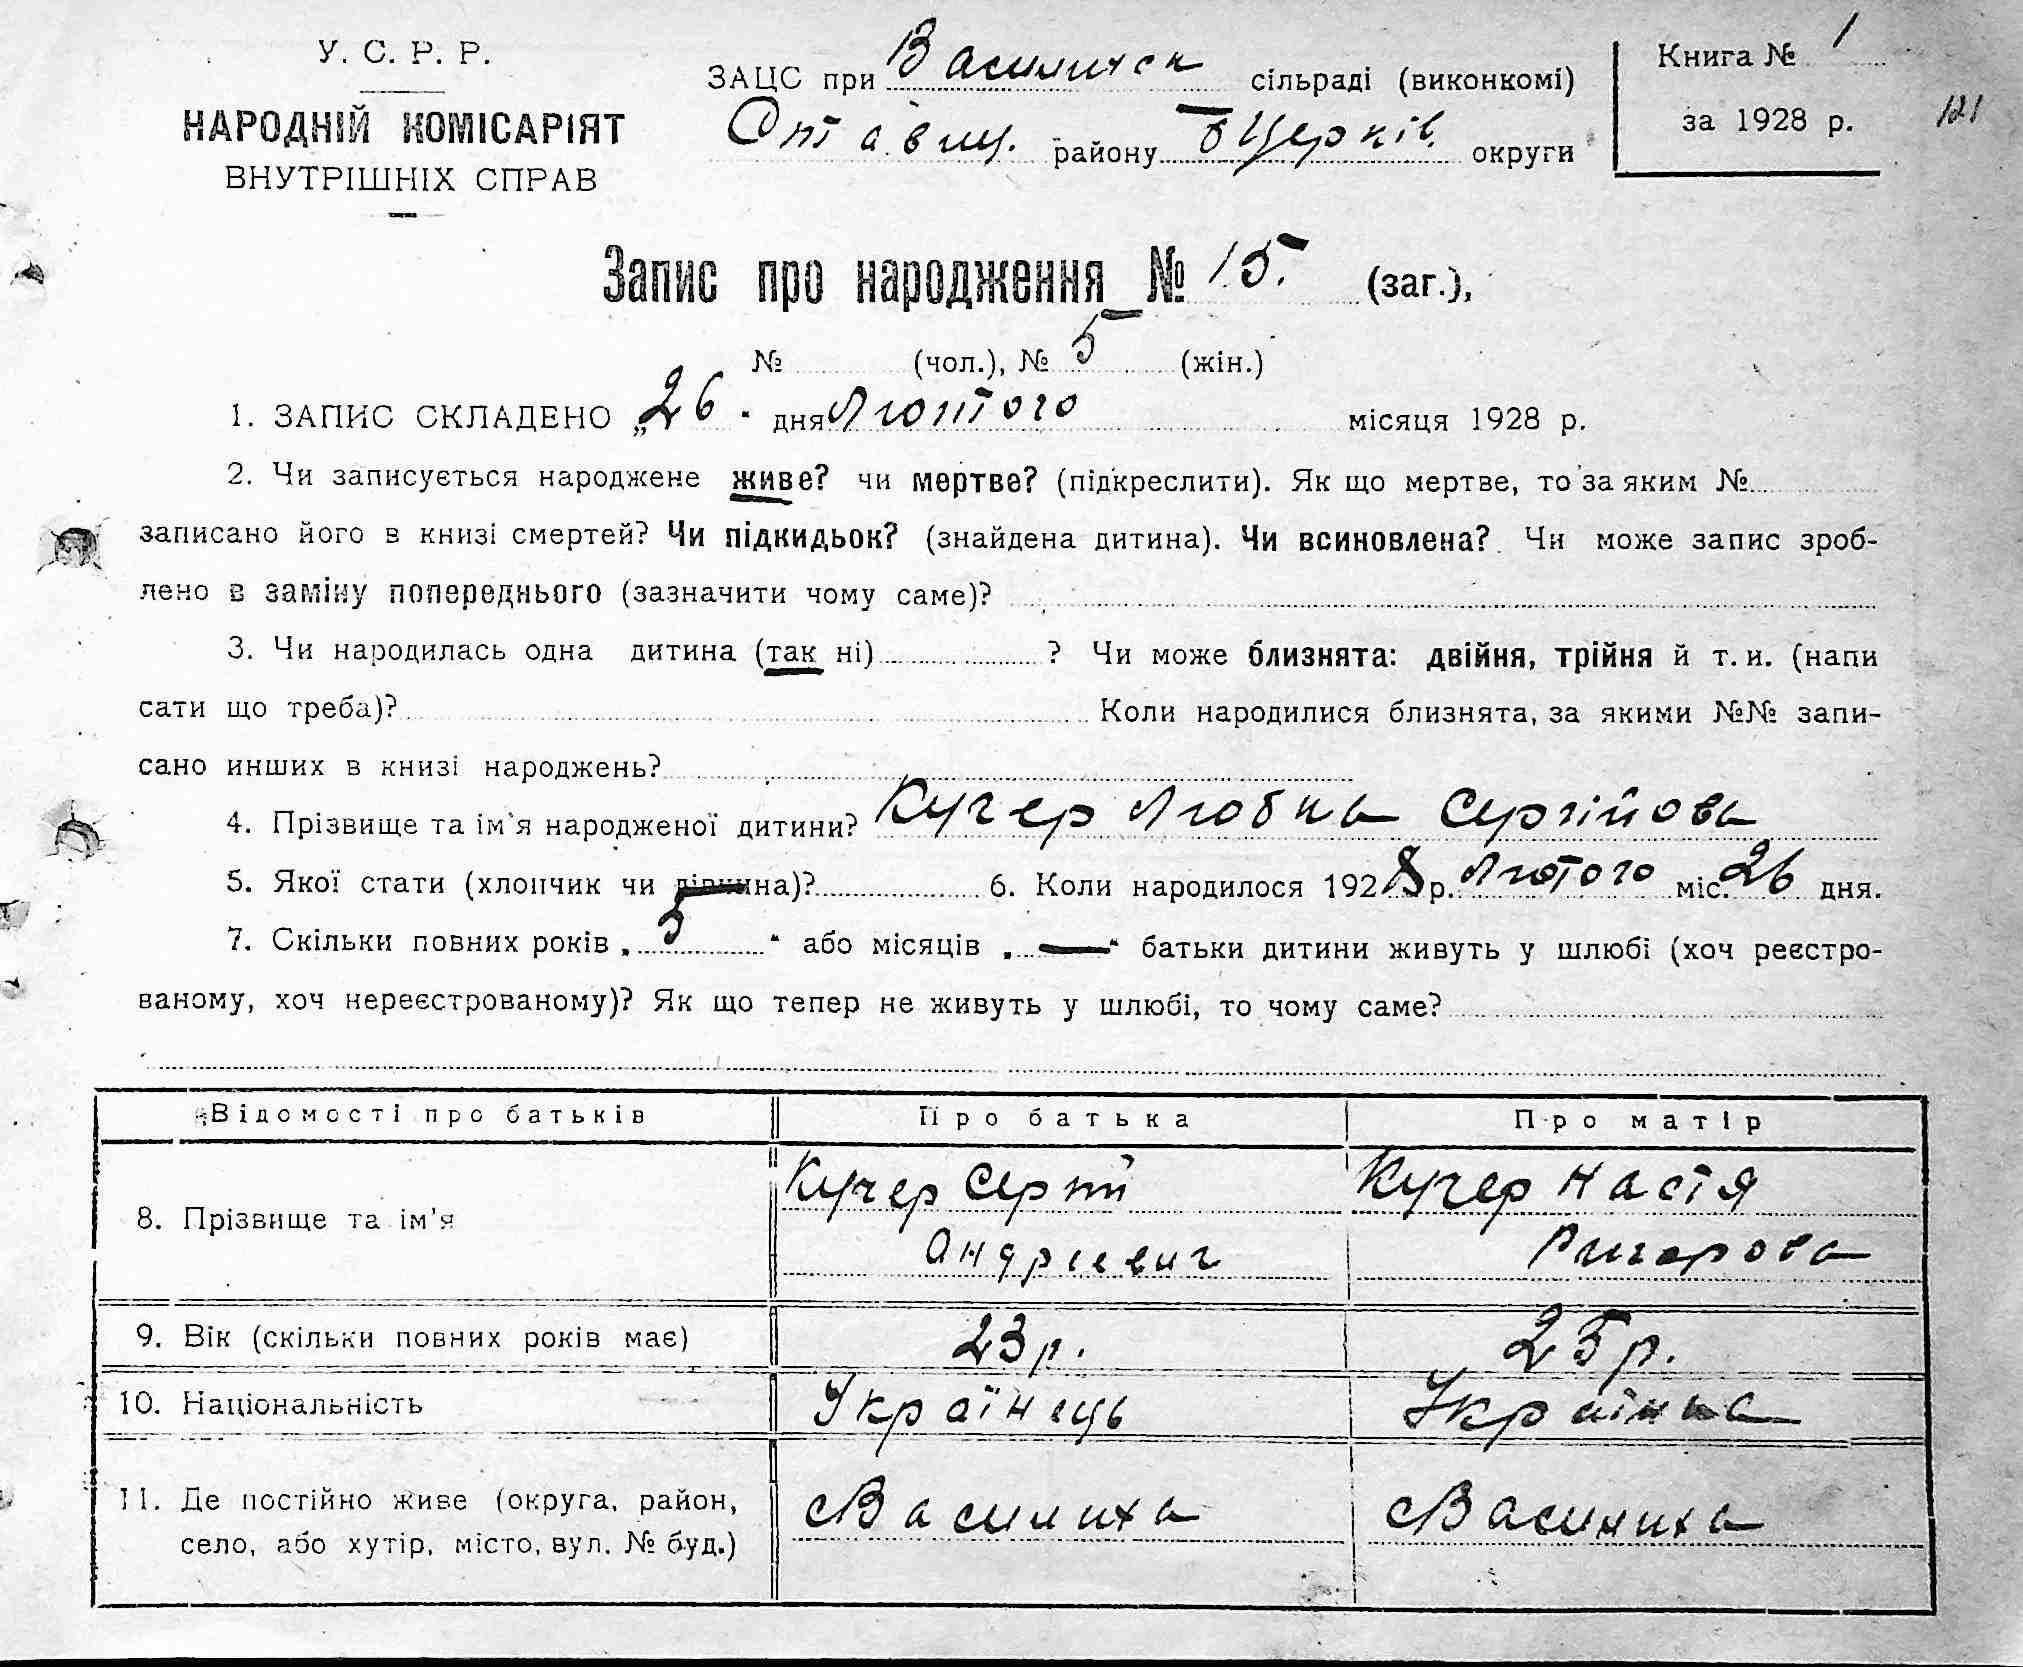 У. С. Р. Р.
НАРОДНІЙ КОМІСАРІЯТ
ВНУТРІШНІХ СПРАВ
ЗАЦС при Василихск сільраді (виконкомі)
Ставищ. району Б Церків. округи
Книга № 1
за 1928 р.
121
Запис про народження № 15. (заг.),
№ (чол.), № 5 (жін.)
1. ЗАПИС СКЛАДЕНО „26" дня Лютого місяця 1928 р.
2. Чи записується народжене живе? чи мертве? (підкреслити). Як що мертве, то за яким №
записано його в книзі смертей? Чи підкидьок? (знайдена дитина). Чи всиновлена? Чи може запис зроб-
лено в заміну попереднього (зазначити чому саме)?
3. Чи народилась одна дитина (так ні) ? Чи може близнята: двійня, трійня й т. и. (напи
сати що треба)? Коли народилися близнята, за якими №№ запи-
сано инших в книзі народжень?
4. Прізвище та ім'я народженої дитини? Кучер Любка Сергійова
5. Якої стати (хлопчик чи дівчина)? 6. Коли народилося 1928 р. Лютого міс. 26 дня.
7. Скільки повних років „ 5 " або місяців „ — " батьки дитини живуть у шлюбі (хоч реєстро-
ваному, хоч нереєстрованому)? Як що тепер не живуть у шлюбі, то чому саме?
Відомості про батьків Про батька Про матір
8. Прізвище та ім'я Кучер Сергій Кучер Настя
Андрієвич
9. Вік (скільки повних років має) 23 р. 25 р.
10. Національність Українець Українка
11. Де постійно живе (округа, район, сВасилиха сВасилиха
село, або хутір, місто, вул. № буд.)